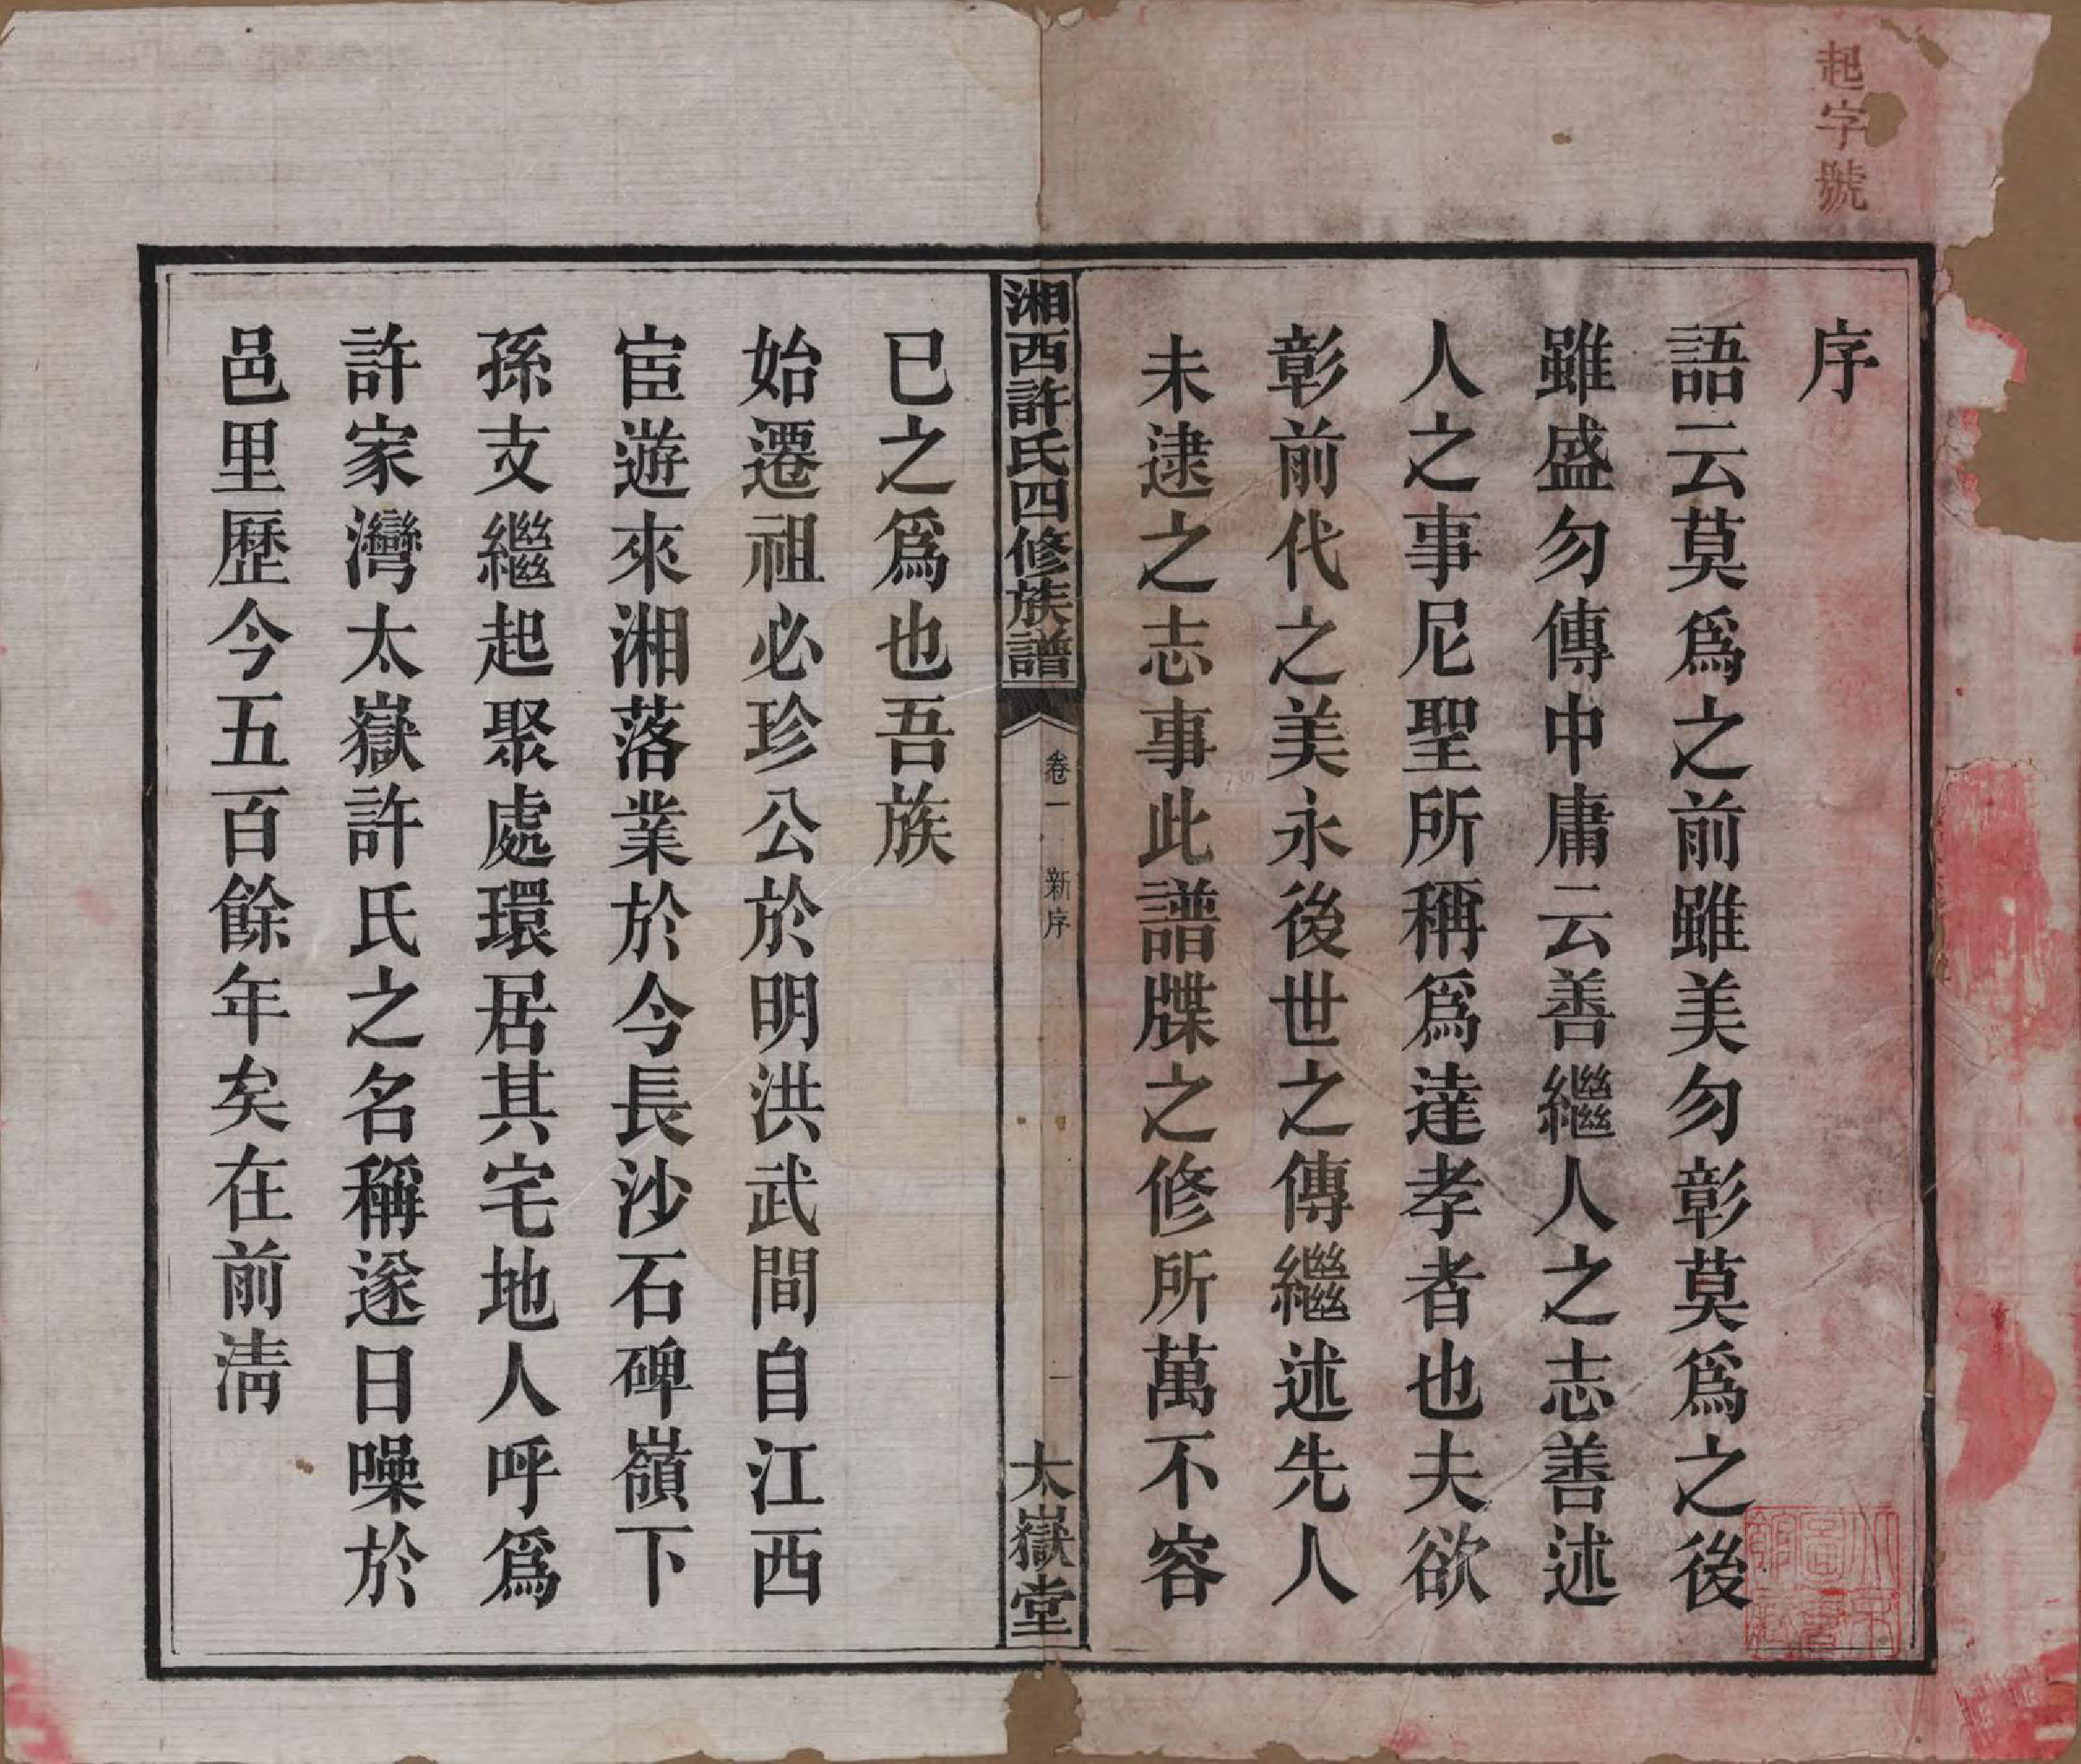 起字號
序
語云莫爲之前雖美勿彰莫爲之後
雖盛勿傳中庸云善繼人之志善述
人之事尼聖所稱爲達孝者也夫欲
彰前代之美永後世之傳繼述先人
未逮之志事此譜牒之修所萬不容
已之爲也吾族
湘西許氏四修族譜
卷一
新序
一
太嶽堂
始遷祖必珍公於明洪武間自江西
宦遊來湘落業於今長沙石碑嶺下
孫支繼起聚處環居其宅地人呼爲
許家灣太嶽許氏之名稱遂日噪於
邑里歷今五百餘年矣在前淸